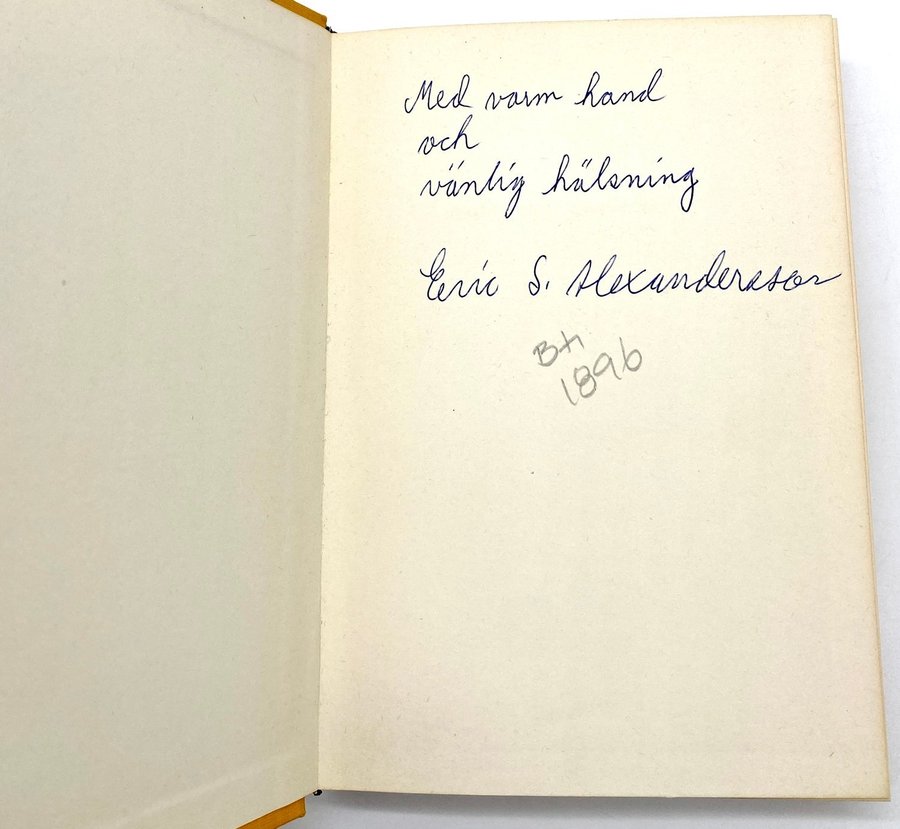 Med varm hand
och
vänlig hälsning
Eric S. Alexandersson
1896